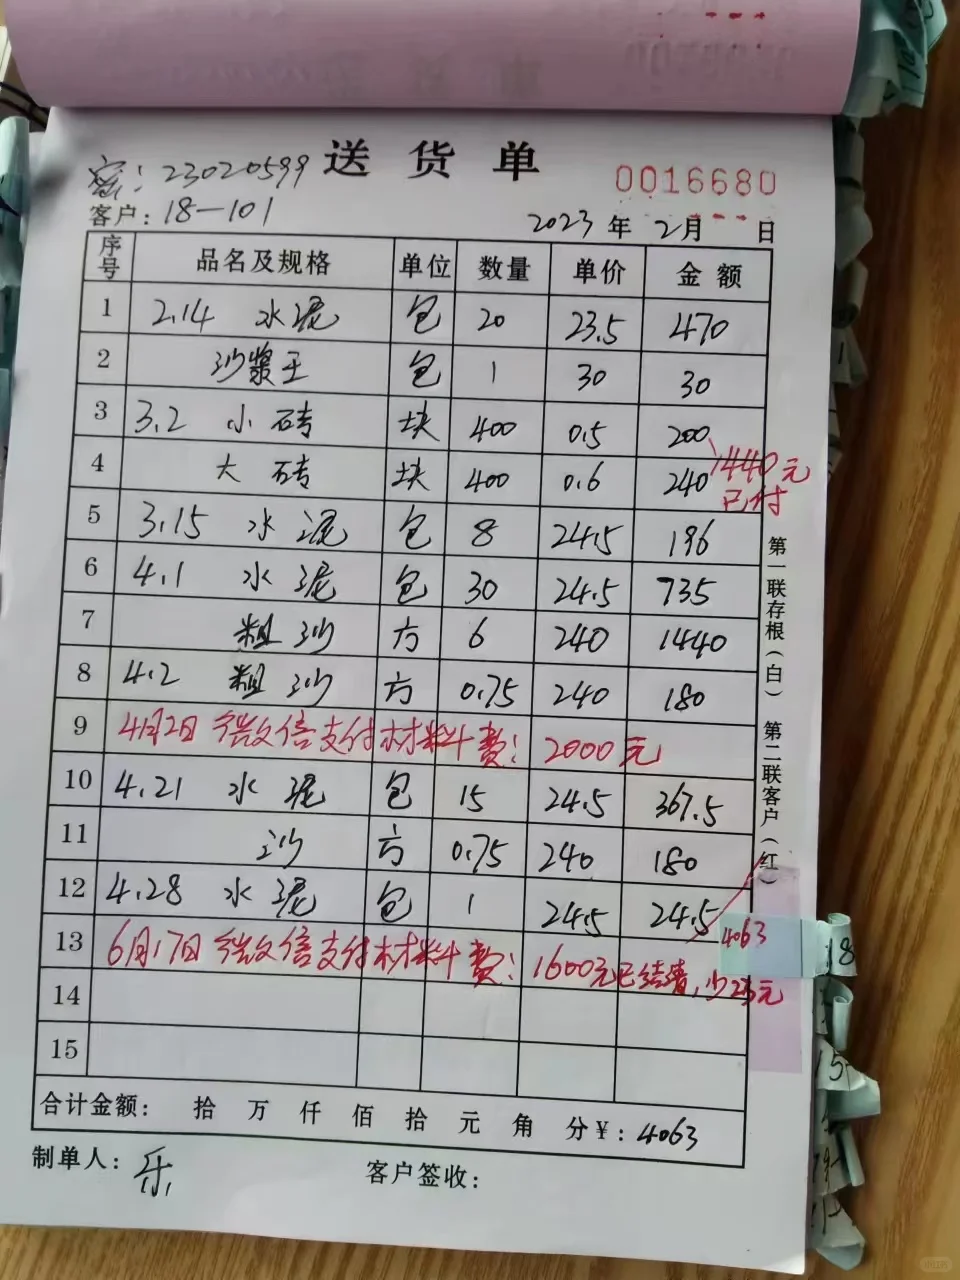 送货单
客: 23020599
0016680
客户: 18-101
2023 年 2 月 日
序号 品名及规格 单位 数量 单价 金额
1 2.14 水泥 包 20 23.5 470
2 沙浆王 包 1 30 30
3 3.2 小砖 块 400 0.5 200
4 大砖 块 400 0.6 240
1440元
已付
5 3.15 水泥 包 8 24.5 196
6 4.1 水泥 包 30 24.5 735
7 粗沙 方 6 240 1440
8 4.2 粗沙 方 0.75 240 180
9 4月2日 微信支付材料费: 2000元
10 4.21 水泥 包 15 24.5 367.5
11 沙 方 0.75 240 180
12 4.28 水泥 包 1 24.5 24.5
4063
13 6月17日 微信支付材料费: 1600元已结清,少23元
14
15
合计金额: 拾 万 仟 佰 拾 元 角 分 ¥: 4063
制单人: 乐
客户签收:
第一联存根(白) 第二联客户(红)
18